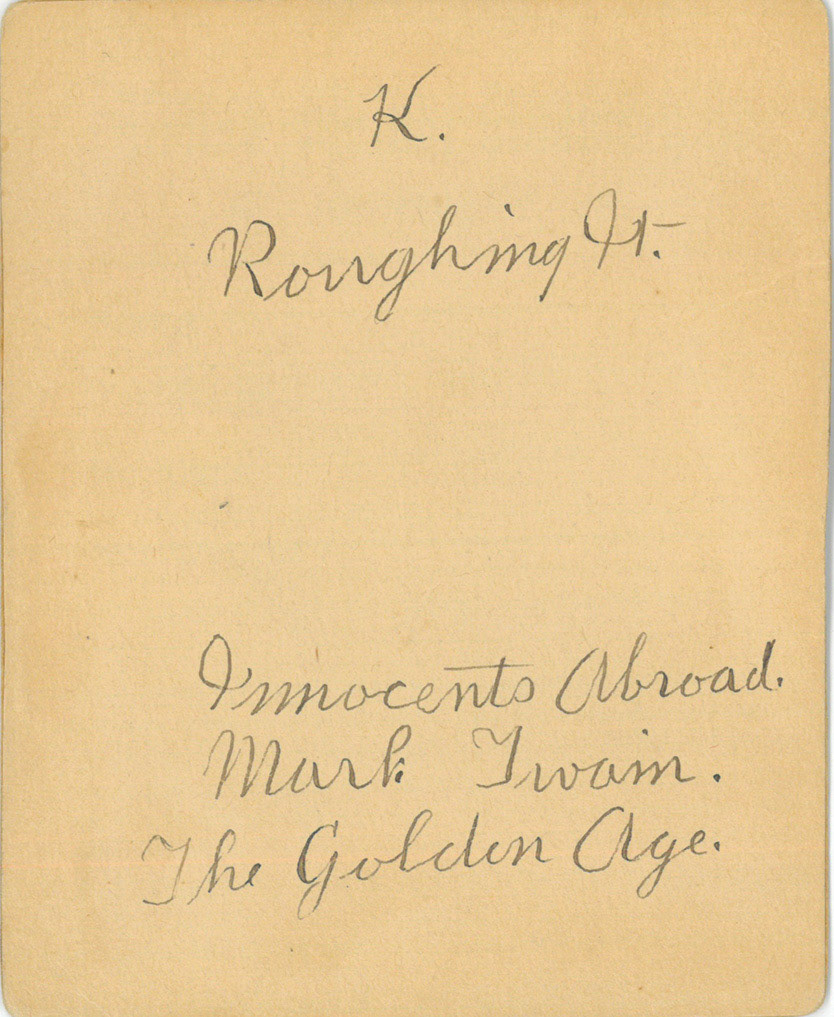 K.
Roughing It.
Innocents Abroad.
Mark Twain.
The Golden Age.